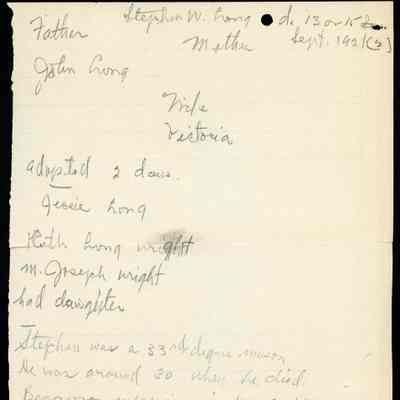 Stephen W. Long d. 13 or 15
Father Mother Sept. 1921(?)
John Long
Wife
Victoria
adopted 2 daus.
Jessie Long
Ruth Long Wright
m. Joseph Wright
had daughter
Stephen was a 33rd degree mason
He was around 80 when he died.